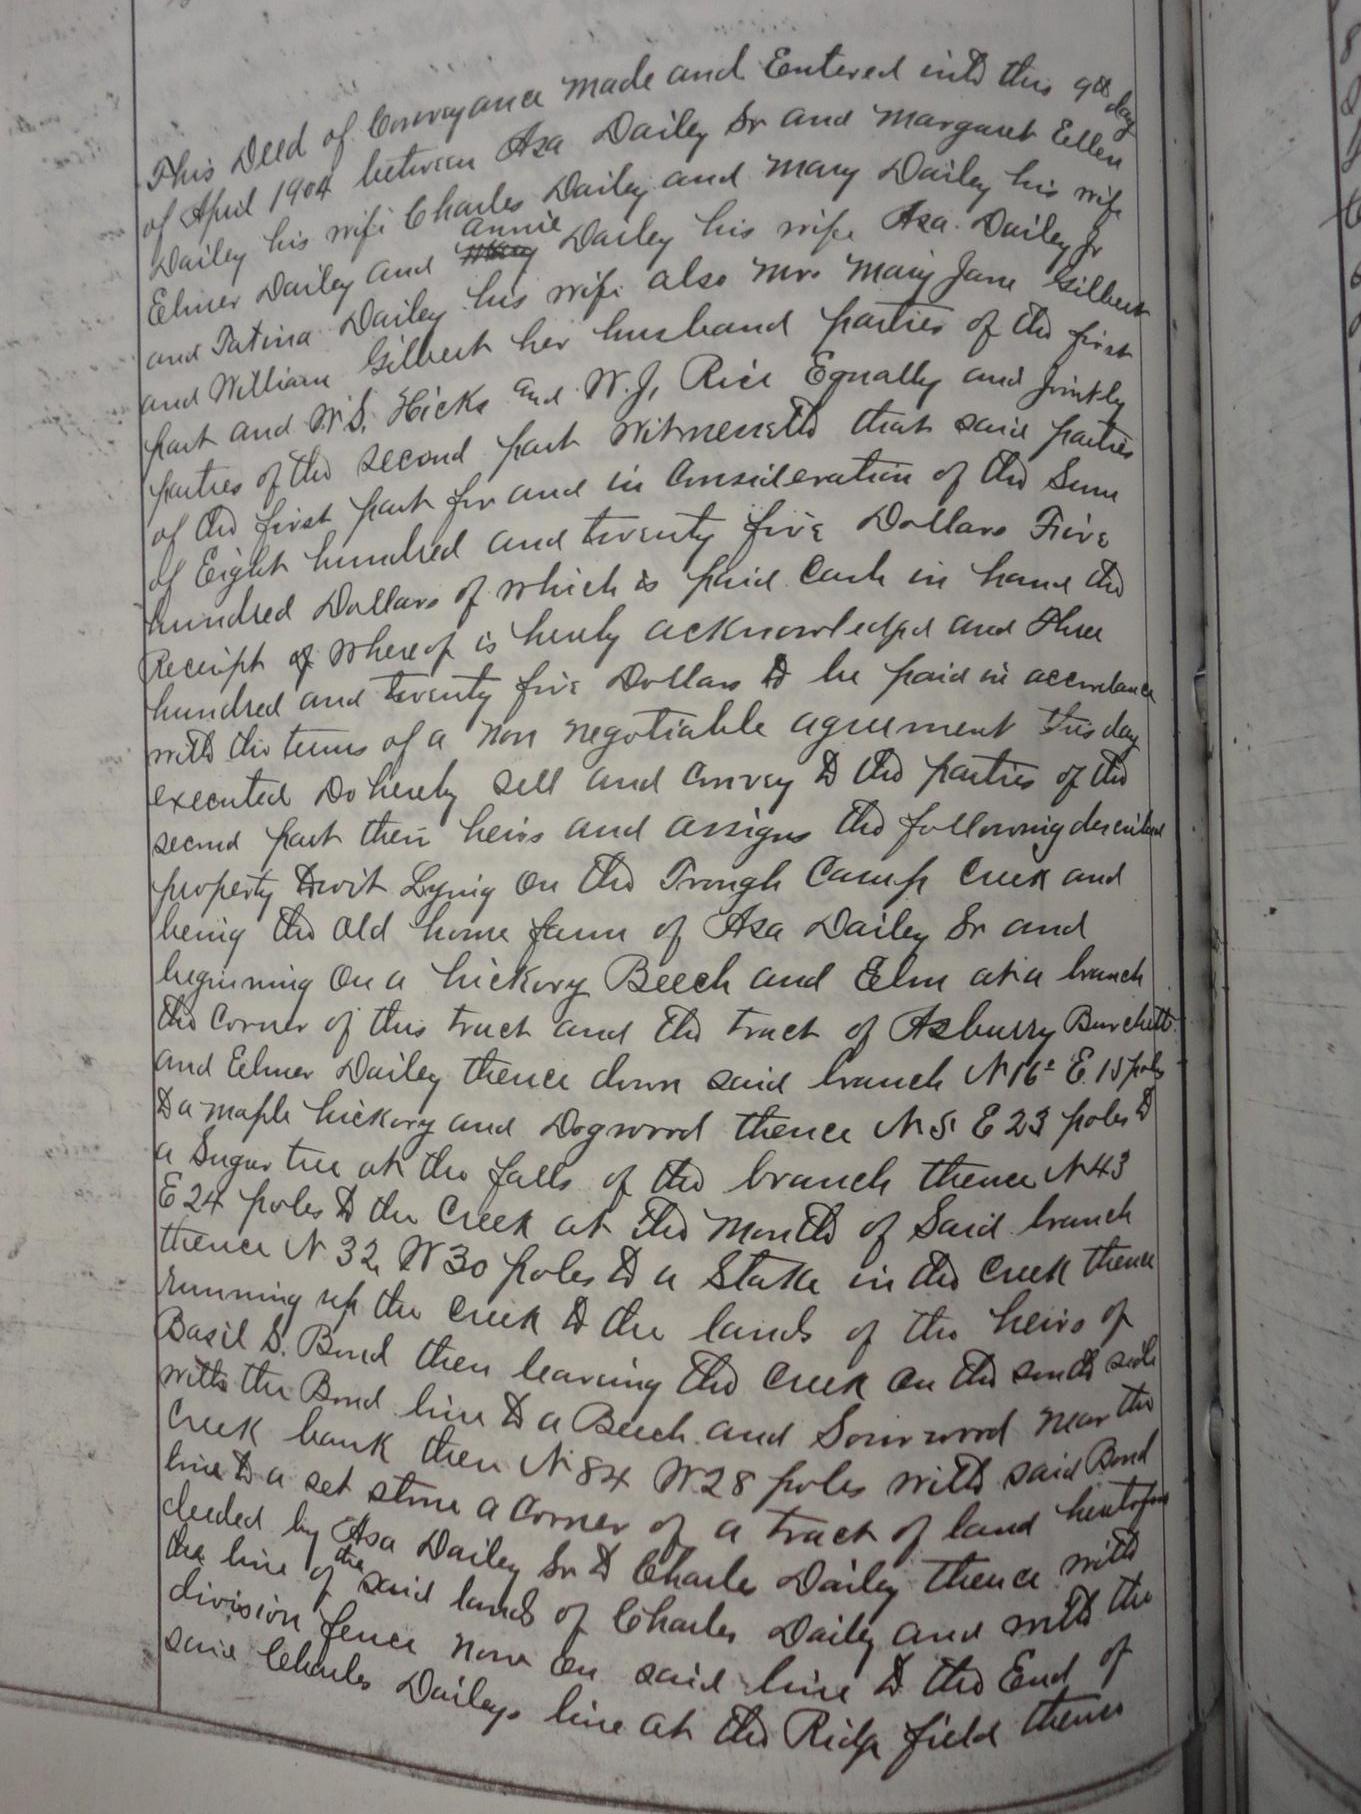 This Deed of Conveyance made and Entered into this 9th day
of April 1904 between Asa Dailey Sr and Margaret Ellen
Dailey his wife Charles Dailey and Mary Dailey his wife
Elmer Dailey and annie Dailey his wife Asa. Dailey Jr
and Tatina Dailey his wife also Mrs Mary Jane Gilbert
and William Gilbert her husband parties of the first
part and W.S. Hicks and W.J. Rice Equally and Jointly
parties of the second part Witnesseth that said parties
of the first part for and in Consideration of the Sum
of Eight hundred and twenty five Dollars Five
hundred Dollars of which is paid Cash in hand the
Receipt of whereof is hereby acknowledged and three
hundred and twenty five Dollars to be paid in accordance
with the terms of a non negotiable agreement this day
executed Do hereby sell and convey to the parties of the
second part their heirs and assigns the following described
property towit Lying on the Trough Camp Creek and
being the old home farm of Asa Dailey Sr and
beginning on a hickory Beech and Elm at a branch
the Corner of this tract and the tract of Asburry Burchett
and Elmer Dailey thence down said branch N 16° E. 15 poles
to a maple hickory and Dogwood thence N 51 E 23 poles to
a Sugar tree at the falls of the branch thence N 43
E 24 poles to the Creek at the Mouth of Said branch
thence N 32 W 30 poles to a Stake in the Creek thence
running up the Creek to the lands of the heirs of
Basil S. Bond then leaving the Creek on the south side
with the Bond line to a Beech and Sourwood near the
Creek bank then N 84 W 28 poles with said Bond
line to a set stone a corner of a tract of land heretofore
deeded by Asa Dailey Sr to Charles Dailey thence with
the line of the said lands of Charles Dailey and with the
division fence now on said line to the End of
said Charles Daileys line at the Ridge field thence